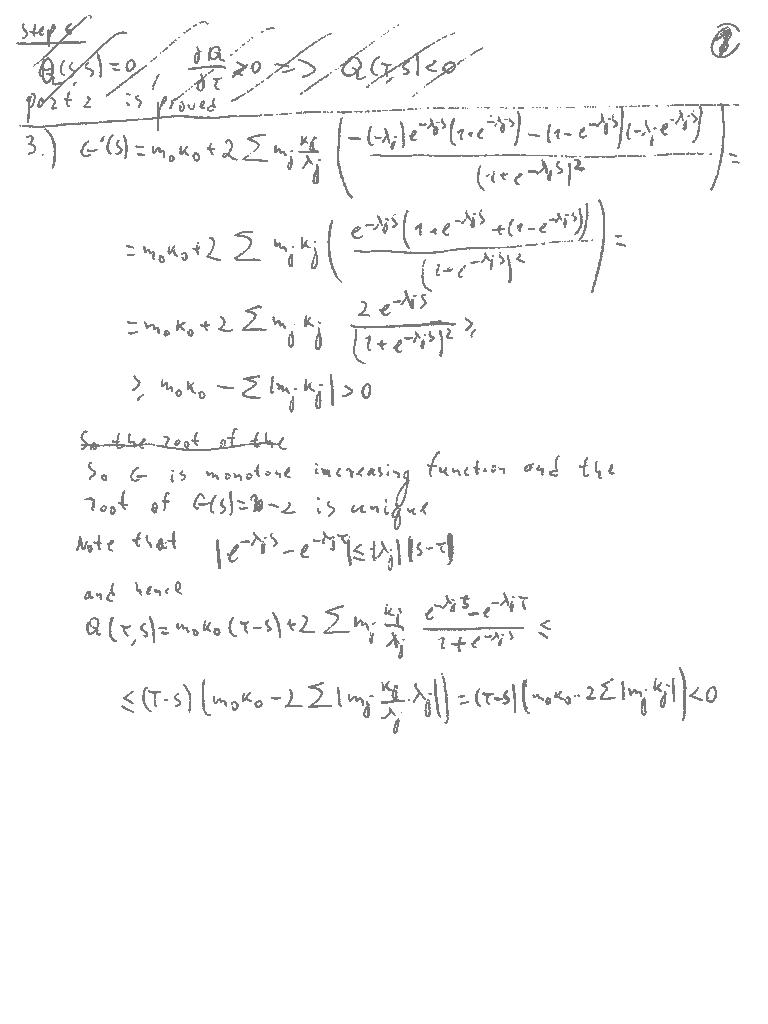 Step 5
8
Q(s,s)=0, ∂Q/∂τ ≥0 => Q(τ,s)<0
part 2 is proved
3.) G'(s)=m₀κ₀+2 Σ mⱼ κⱼ/λⱼ ( (-(-λⱼ)e^{-λⱼs}(1+e^{-λⱼs})-(1-e^{-λⱼs})(-λⱼe^{-λⱼs})) / (1+e^{-λⱼs})² ) =
=m₀κ₀+2 Σ mⱼκⱼ ( e^{-λⱼs}(1+e^{-λⱼs}+(1-e^{-λⱼs})) / (1+e^{-λⱼs})² ) =
=m₀κ₀+2 Σ mⱼκⱼ 2e^{-λⱼs} / (1+e^{-λⱼs})² ≥
≥ m₀κ₀ - Σ|mⱼκⱼ| >0
So the root of the
So G is monotone increasing function and the
root of G(s)=-2 is unique
Note that |e^{-λⱼs}-e^{-λⱼτ}|≤|λⱼ||s-τ|
and hence
Q(τ,s)=m₀κ₀(τ-s)+2 Σ mⱼ κⱼ/λⱼ (e^{-λⱼs}-e^{-λⱼτ}) / (1+e^{-λⱼs}) ≤
≤(τ-s)(m₀κ₀-2 Σ|mⱼ κⱼ/λⱼ·λⱼ|)=(τ-s)(m₀κ₀-2Σ|mⱼκⱼ|)<0